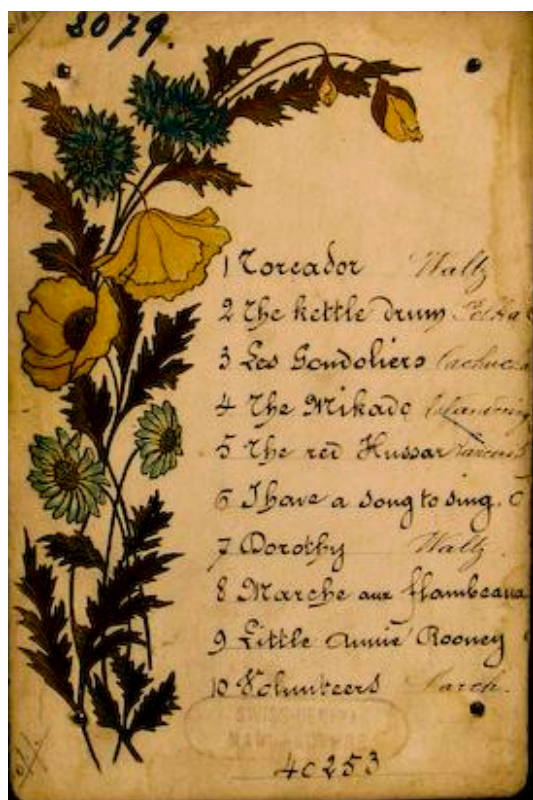 8079.
1 Toreador Waltz
2 The kettle drum Polka
3 Les Gondoliers Cachuca
4 The Mikado
5 The red Hussar
6 I have a song to sing. O
7 Dorothy Waltz.
8 Marche aux flambeaux
9 Little Annie Rooney
10 Volunteers March.
40253